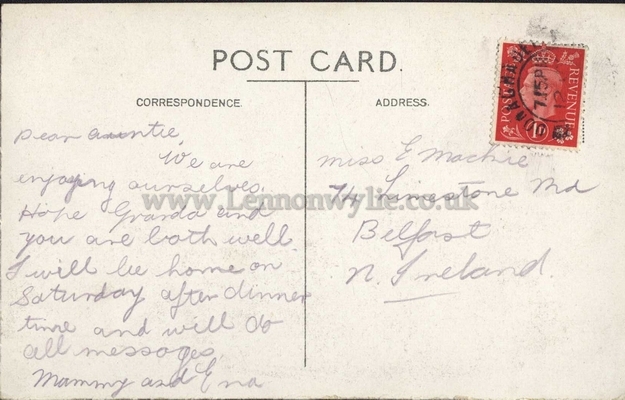 POST CARD.
CORRESPONDENCE.
ADDRESS.
POSTAGE
REVENUE
1D
7.15P
Dear auntie
We are
enjoying ourselves.
Hope Granda and
you are both well.
I will be home on
Saturday after dinner
time and will do
all messages
Mammy and Ena
Miss E Mackie
74 Limestone Rd
Belfast
N. Ireland.
www.Lennonwylie.co.uk